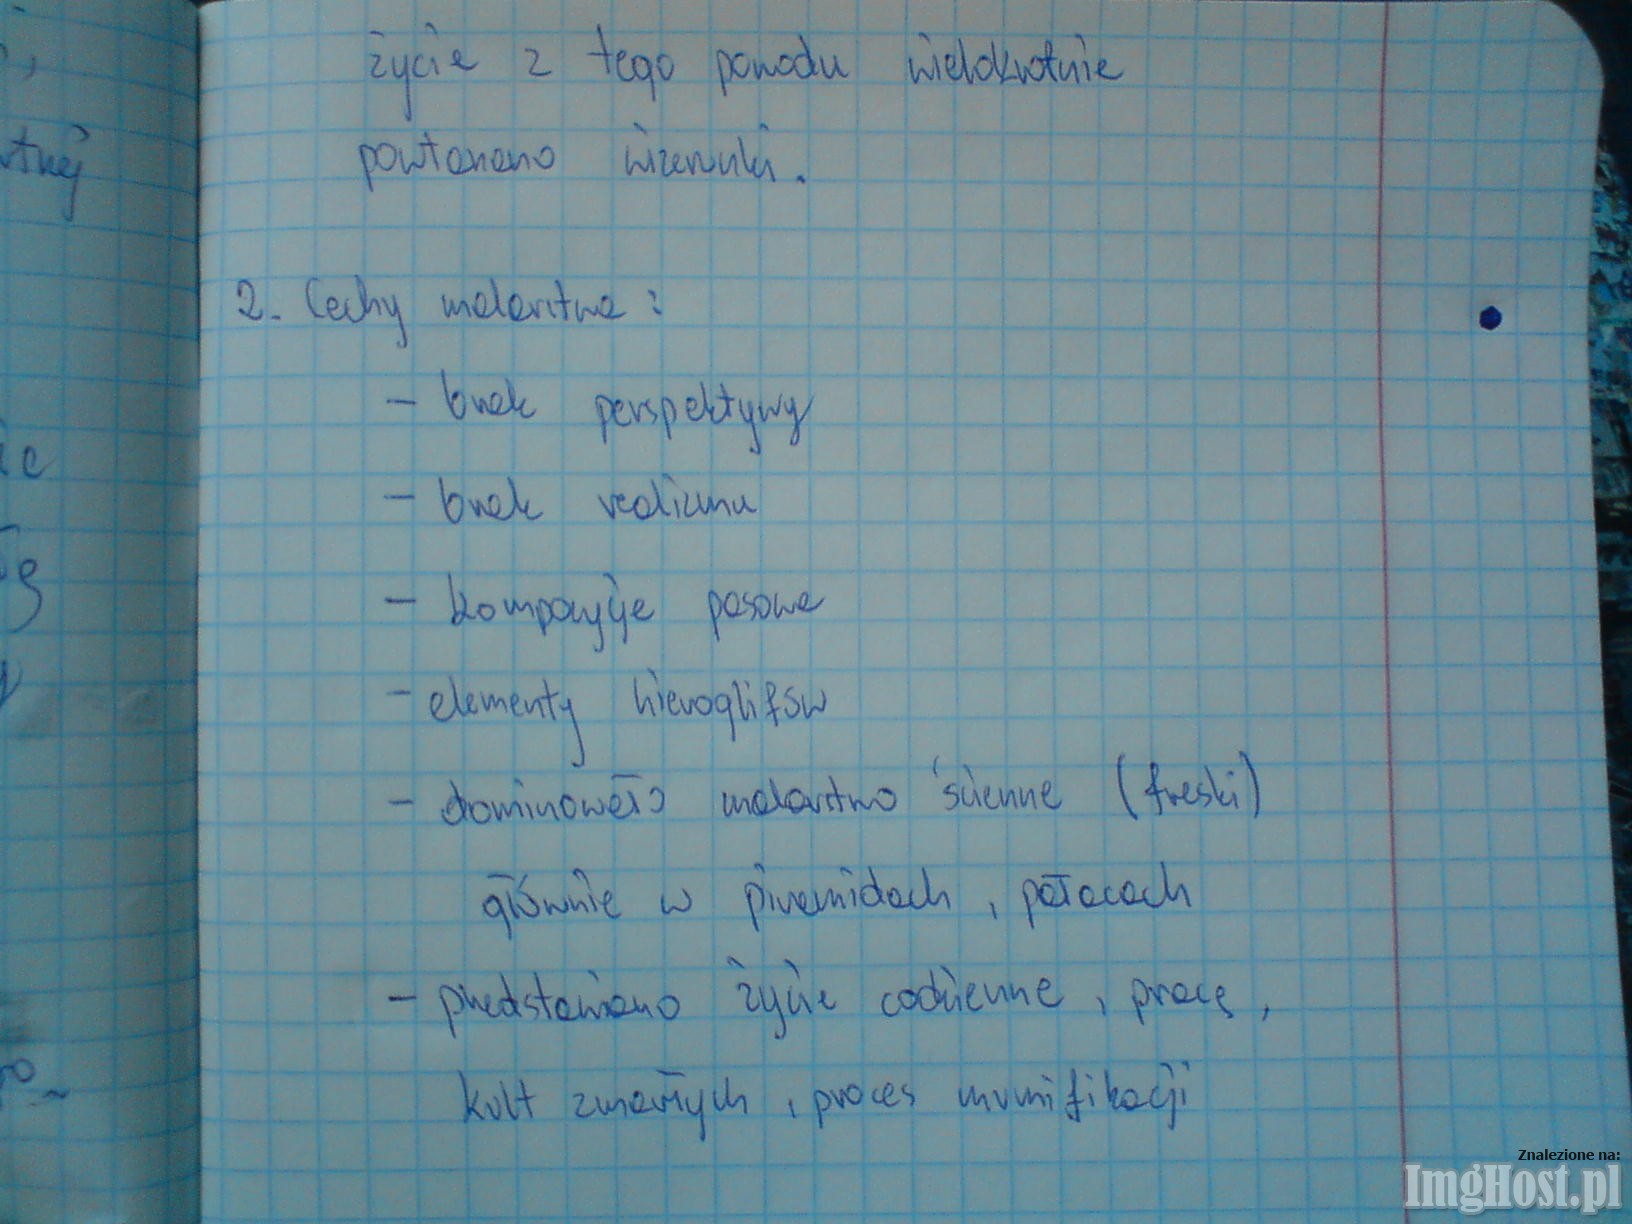 życie z tego powodu wielokrotnie
powtarzano wizerunki.
2. Cechy malarstwa:
- brak perspektywy
- brak realizmu
- kompozycje pasowe
- elementy hieroglifów
- dominowało malarstwo ścienne (freski)
głównie w piramidach, pałacach
- przedstawiano życie codzienne, pracę,
kult zmarłych, proces mumifikacji
Znalezione na:
ImgHost.pl